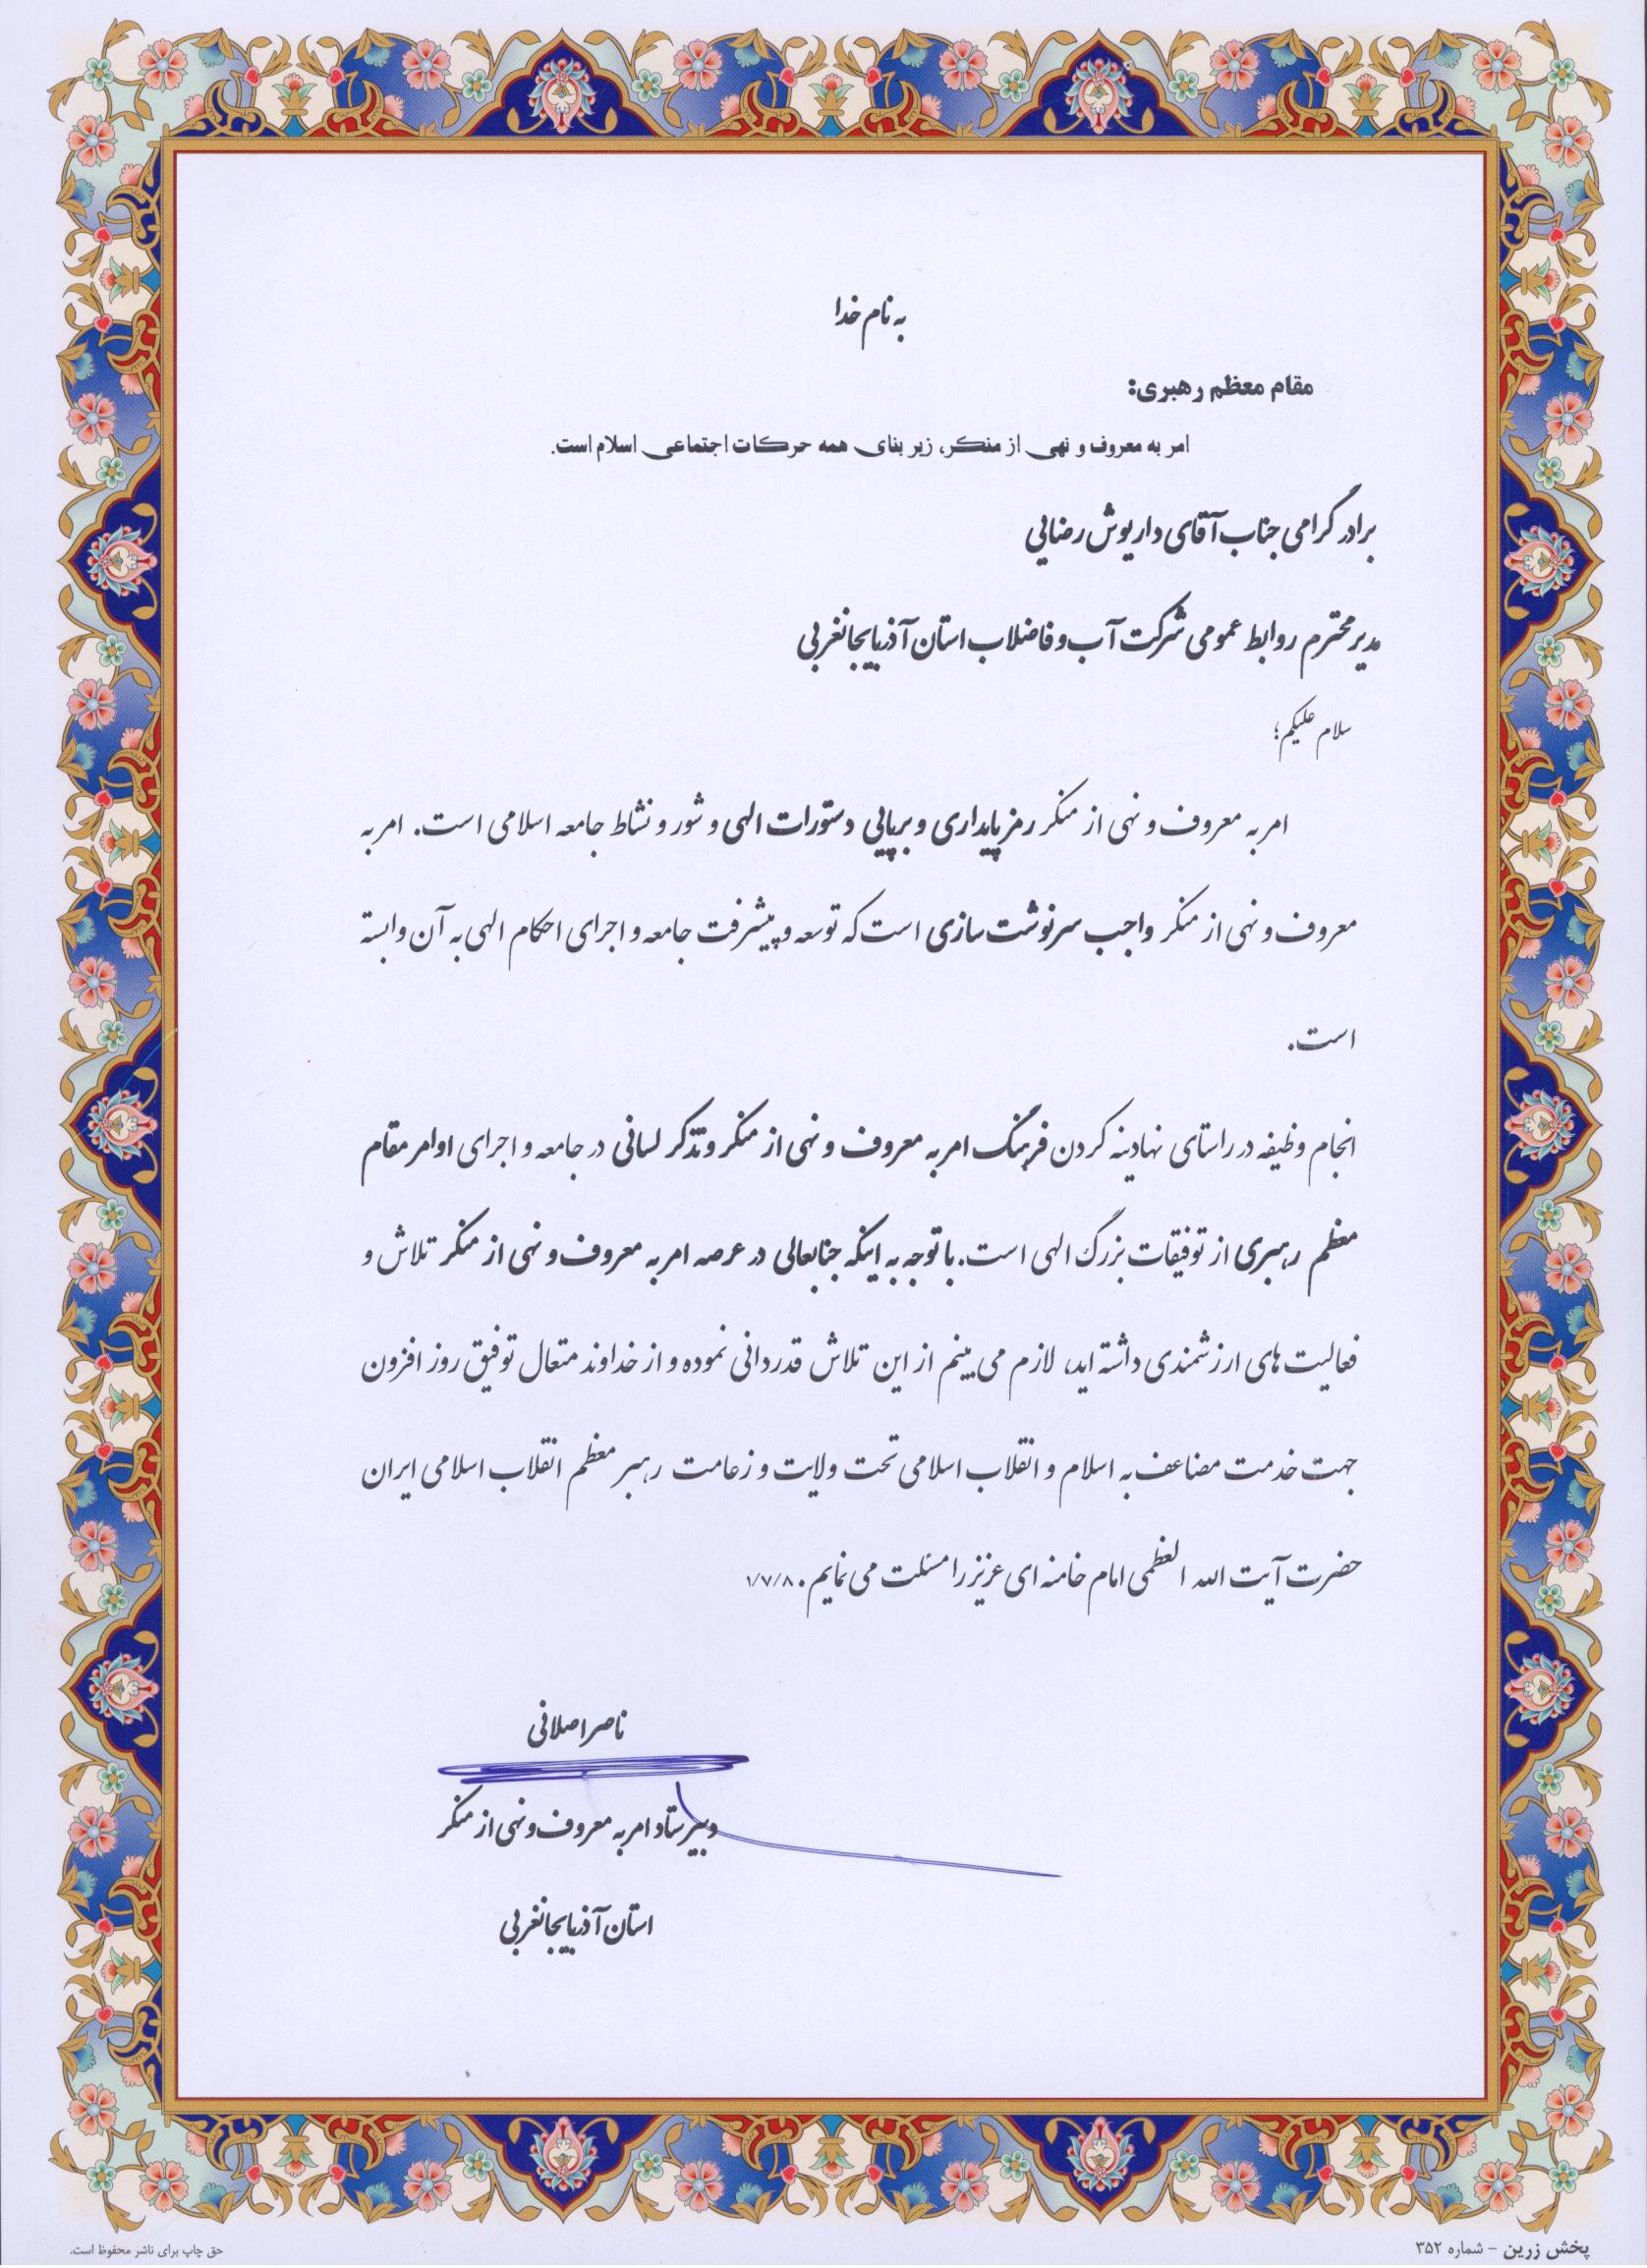 به نام خدا
مقام معظم رهبری:
امر به معروف و نهی از منکر، زیر بنای همه حرکات اجتماعی اسلام است.
برادر گرامی جناب آقای داریوش رضایی
مدیر محترم روابط عمومی شرکت آب و فاضلاب استان آذربایجانغربی
سلام علیکم؛
امر به معروف و نهی از منکر رمز پایداری و برپایی دستورات الهی و شور و نشاط جامعه اسلامی است. امر به
معروف و نهی از منکر واجب سرنوشت سازی است که توسعه و پیشرفت جامعه و اجرای احکام الهی به آن وابسته
است.
انجام وظیفه در راستای نهادینه کردن فرهنگ امر به معروف و نهی از منکر و تذکر لسانی در جامعه و اجرای اوامر مقام
معظم رهبری از توفیقات بزرگ الهی است. با توجه به اینکه جنابعالی در عرصه امر به معروف و نهی از منکر تلاش و
فعالیت های ارزشمندی داشته اید، لازم می بینم از این تلاش قدردانی نموده و از خداوند متعال توفیق روز افزون
جهت خدمت مضاعف به اسلام و انقلاب اسلامی تحت ولایت و زعامت رهبر معظم انقلاب اسلامی ایران
حضرت آیت الله العظمی امام خامنه ای عزیز را مسئلت می نمایم. ۱/۷/۸۰
ناصر اصلانی
دبیر ستاد امر به معروف و نهی از منکر
استان آذربایجانغربی
پخش زرین - شماره ۳۵۲
حق چاپ برای ناشر محفوظ است.